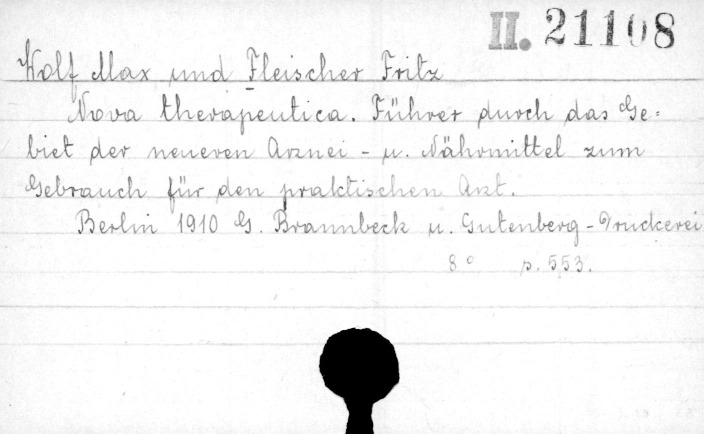 II. 21108
Wolf Max und Fleischer Fritz
Nova therapeutica. Führer durch das Ge=
biet der neueren Arznei - u. Nährmittel zum
Gebrauch für den praktischen Arzt.
Berlin 1910 G. Braunbeck u. Gutenberg - Druckerei
8° p. 553.